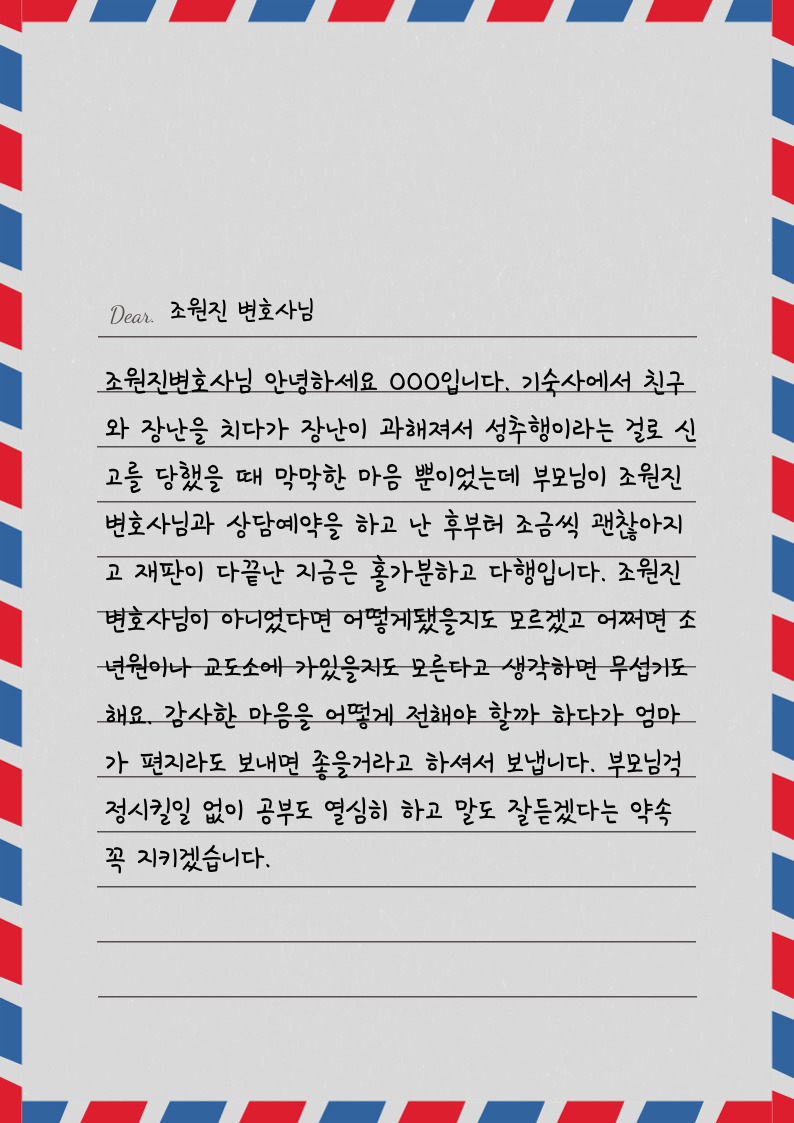 Dear. 조원진 변호사님
조원진변호사님 안녕하세요 OOO입니다. 기숙사에서 친구
와 장난을 치다가 장난이 과해져서 성추행이라는 걸로 신
고를 당했을 때 막막한 마음 뿐이었는데 부모님이 조원진
변호사님과 상담예약을 하고 난 후부터 조금씩 괜찮아지
고 재판이 다끝난 지금은 홀가분하고 다행입니다. 조원진
변호사님이 아니었다면 어떻게됐을지도 모르겠고 어쩌면 소
년원이나 교도소에 가있을지도 모른다고 생각하면 무섭기도
해요. 감사한 마음을 어떻게 전해야 할까 하다가 엄마
가 편지라도 보내면 좋을거라고 하셔서 보냅니다. 부모님걱
정시킬일 없이 공부도 열심히 하고 말도 잘듣겠다는 약속
꼭 지키겠습니다.